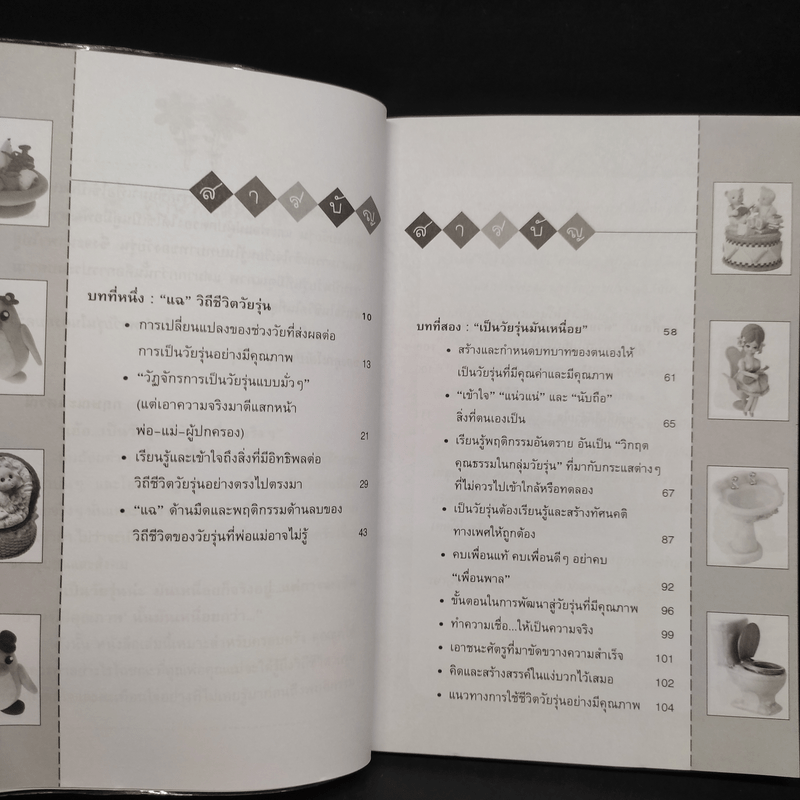 สารบัญ
บทที่หนึ่ง : “แฉ” วิถีชีวิตวัยรุ่น 10
• การเปลี่ยนแปลงของช่วงวัยที่ส่งผลต่อ
การเป็นวัยรุ่นอย่างมีคุณภาพ 13
• “วัฏจักรการเป็นวัยรุ่นแบบมั่วๆ”
(แต่เอาความจริงมาตีแสกหน้า
พ่อ-แม่-ผู้ปกครอง) 21
• เรียนรู้และเข้าใจถึงสิ่งที่มีอิทธิพลต่อ
วิถีชีวิตวัยรุ่นอย่างตรงไปตรงมา 29
• “แฉ” ด้านมืดและพฤติกรรมด้านลบของ
วิถีชีวิตของวัยรุ่นที่พ่อแม่อาจไม่รู้ 43
สารบัญ
บทที่สอง : “เป็นวัยรุ่นมันเหนื่อย” 58
• สร้างและกำหนดบทบาทของตนเองให้
เป็นวัยรุ่นที่มีคุณค่าและมีคุณภาพ 61
• “เข้าใจ” “แน่วแน่” และ “นับถือ”
สิ่งที่ตนเองเป็น 65
• เรียนรู้พฤติกรรมอันตราย อันเป็น “วิกฤต
คุณธรรมในกลุ่มวัยรุ่น” ที่มากับกระแสต่างๆ
ที่ไม่ควรไปเข้าใกล้หรือทดลอง 67
• เป็นวัยรุ่นต้องเรียนรู้และสร้างทัศนคติ
ทางเพศให้ถูกต้อง 87
• คบเพื่อนแท้ คบเพื่อนดีๆ อย่าคบ
“เพื่อนพาล” 92
• ขั้นตอนในการพัฒนาสู่วัยรุ่นที่มีคุณภาพ 96
• ทำความเชื่อ...ให้เป็นความจริง 99
• เอาชนะศัตรูที่มาขัดขวางความสำเร็จ 101
• คิดและสร้างสรรค์ในแง่บวกไว้เสมอ 102
• แนวทางการใช้ชีวิตวัยรุ่นอย่างมีคุณภาพ 104